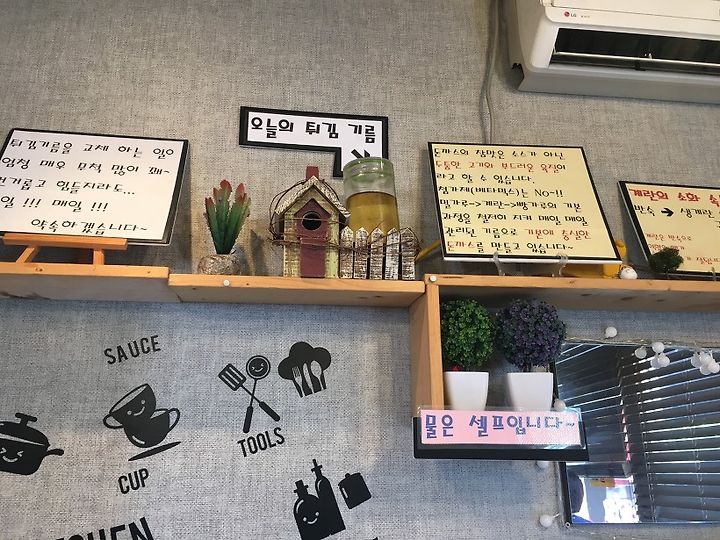 LG
오늘의 튀김 기름
튀김기름을 교체 하는 일이
엄청 매우 무척 많이 꽤~
번거롭고 힘들지라도...
매일 !!! 매일 !!!
약속하겠습니다~
돈까스의 참맛은 소스가 아닌
두툼한 고기와 부드러운 육질이
라고 할 수 있습니다
첨가제(베타믹스)는 No~!!
밀가루->계란->빵가루의 기본
과정을 철저히 지켜 매일 매일
관리된 기름으로 기본에 충실한
돈까스를 만들고 있습니다~
계란의 소화 속
반숙 → 생계란
계란은 반숙으로
물은 셀프입니다~
SAUCE
CUP
TOOLS